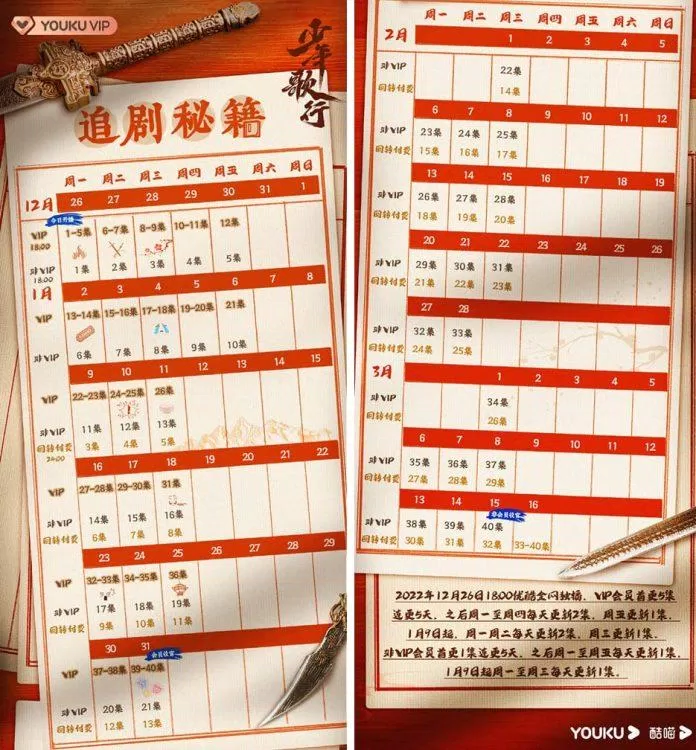 YOUKU VIP
少年歌行
追剧秘籍
周一 周二 周三 周四 周五 周六 周日
12月 26 27 28 29 30 31 1
今日开播
VIP 18:00 1-5集 6-7集 8-9集 10-11集 12集
非VIP 18:00 1集 2集 3集 4集 5集
1月 2 3 4 5 6 7 8
VIP 13-14集 15-16集 17-18集 19-20集 21集
非VIP 6集 7集 8集 9集 10集
9 10 11 12 13 14 15
VIP 22-23集 24-25集 26集
非VIP 11集 12集 13集
回转付费 24:00 3集 4集 5集
16 17 18 19 20 21 22
VIP 27-28集 29-30集 31集
非VIP 14集 15集 16集
回转付费 6集 7集 8集
23 24 25 26 27 28 29
VIP 32-33集 34-35集 36集
非VIP 17集 18集 19集
回转付费 9集 10集 11集
30 31
会员收官
VIP 37-38集 39-40集
非VIP 20集 21集
回转付费 12集 13集
周一 周二 周三 周四 周五 周六 周日
2月 1 2 3 4 5
非VIP 22集
回转付费 14集
6 7 8 9 10 11 12
非VIP 23集 24集 25集
回转付费 15集 16集 17集
13 14 15 16 17 18 19
非VIP 26集 27集 28集
回转付费 18集 19集 20集
20 21 22 23 24 25 26
非VIP 29集 30集 31集
回转付费 21集 22集 23集
27 28
非VIP 32集 33集
回转付费 24集 25集
3月 1 2 3 4 5
非VIP 34集
回转付费 26集
6 7 8 9 10 11 12
非VIP 35集 36集 37集
回转付费 27集 28集 29集
13 14 15 16
非会员收官
非VIP 38集 39集 40集
回转付费 30集 31集 32集 33-40集
2022年12月26日18:00优酷全网独播，VIP会员首更5集
连更5天，之后周一至周四每天更新2集，周五更新1集，
1月9日起，周一周二每天更新2集，周三更新1集，
非VIP会员首更1集连更5天，之后周一至周五每天更新1集，
1月9日起周一至周三每天更新1集。
YOUKU 酷喵